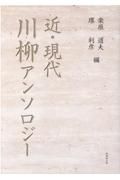 桒原 道夫
堺 利彦 編
近・現代
川柳アンソロジー